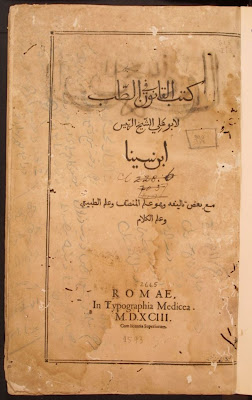 كتب القانون في الطب
لابو علي الشيخ الرئيس
ابن سينا
مع بعض تاليفه وهو علم المنطق وعلم الطبيعي
وعلم الكلام
ROMAE,
In Typographia Medicea.
M.D.XCIII.
Cum licentia Superiorum.
1593